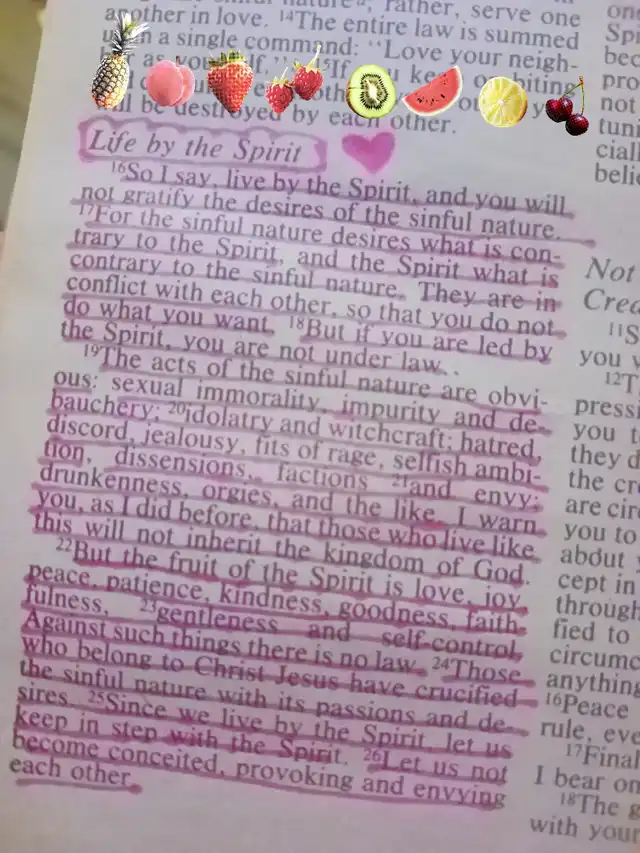 rather, serve one
another in love. ¹⁴The entire law is summed
in a single command: "Love your neigh-
as you ¹⁵If keep on biting
other
be destroyed by each other.
Life by the Spirit
¹⁶So I say, live by the Spirit, and you will
not gratify the desires of the sinful nature.
¹⁷For the sinful nature desires what is con-
trary to the Spirit, and the Spirit what is
contrary to the sinful nature. They are in
conflict with each other, so that you do not
do what you want. ¹⁸But if you are led by
the Spirit, you are not under law.
¹⁹The acts of the sinful nature are obvi-
ous: sexual immorality, impurity and de-
bauchery; ²⁰idolatry and witchcraft; hatred,
discord, jealousy, fits of rage, selfish ambi-
tion, dissensions, factions ²¹and envy;
drunkenness, orgies, and the like. I warn
you, as I did before, that those who live like
this will not inherit the kingdom of God.
²²But the fruit of the Spirit is love, joy,
peace, patience, kindness, goodness, faith-
fulness, ²³gentleness and self-control.
Against such things there is no law. ²⁴Those
who belong to Christ Jesus have crucified
the sinful nature with its passions and de-
sires. ²⁵Since we live by the Spirit, let us
keep in step with the Spirit. ²⁶Let us not
become conceited, provoking and envying
each other.
Spi
bec
pro
not
tuni
ciall
belie
Not
Crea
¹¹S
you w
¹²T
pressi
you t
they d
the cr
are cir
you to
about y
cept in
through
fied to
circumc
anything
¹⁶Peace
rule, eve
¹⁷Final
I bear on
¹⁸The g
with your